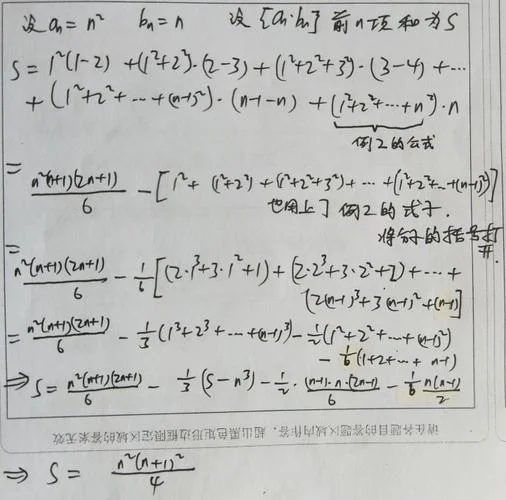 设 aₙ = n²  bₙ = n  设 {aₙ·bₙ} 前n项和为S
S = 1²(1-2) + (1²+2²)·(2-3) + (1²+2²+3²)·(3-4) + ⋯
+ (1²+2²+⋯+(n-1)²)·(n-1-n) + (1²+2²+⋯+n²)·n
例2的公式
= n²(n+1)(2n+1)/6 - [1² + (1²+2²) + (1²+2²+3²) + ⋯ + (1²+2²+⋯+(n-1)²)]
也用上了例2的式子.
将分子的括号打开.
= n²(n+1)(2n+1)/6 - 1/6[(2·1³+3·1²+1) + (2·2³+3·2²+2) + ⋯ +
(2(n-1)³+3(n-1)²+(n-1)]
= n²(n+1)(2n+1)/6 - 1/3(1³+2³+⋯+(n-1)³) - 1/2(1²+2²+⋯+(n-1)²)
- 1/6(1+2+⋯+n-1)
⇒ S = n²(n+1)(2n+1)/6 - 1/3(S-n³) - 1/2·(n-1)·n·(2n-1)/6 - 1/6 n(n-1)/2
请在各题目的答题区域内作答，超出黑色矩形边框限定区域的答案无效
⇒ S = n²(n+1)²/4